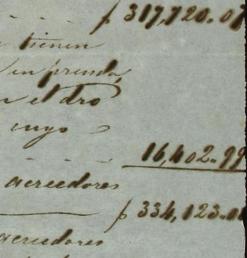 $ 317,720.07
tienen
en prenda
el dro
cuyo
16,402.99
acreedores
$ 334,123.0
acreedores